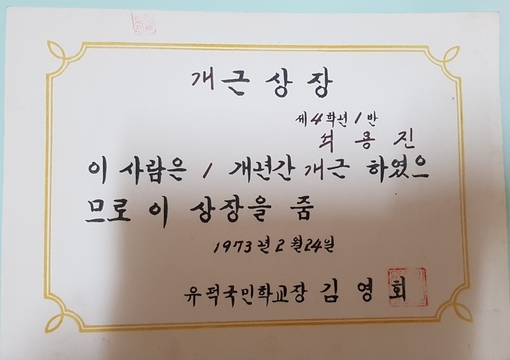 개근상장
제4학년 1반
최용진
이 사람은 1 개년간 개근 하였으
므로 이 상장을 줌
1973년 2월 24일
유덕국민학교장 김영회